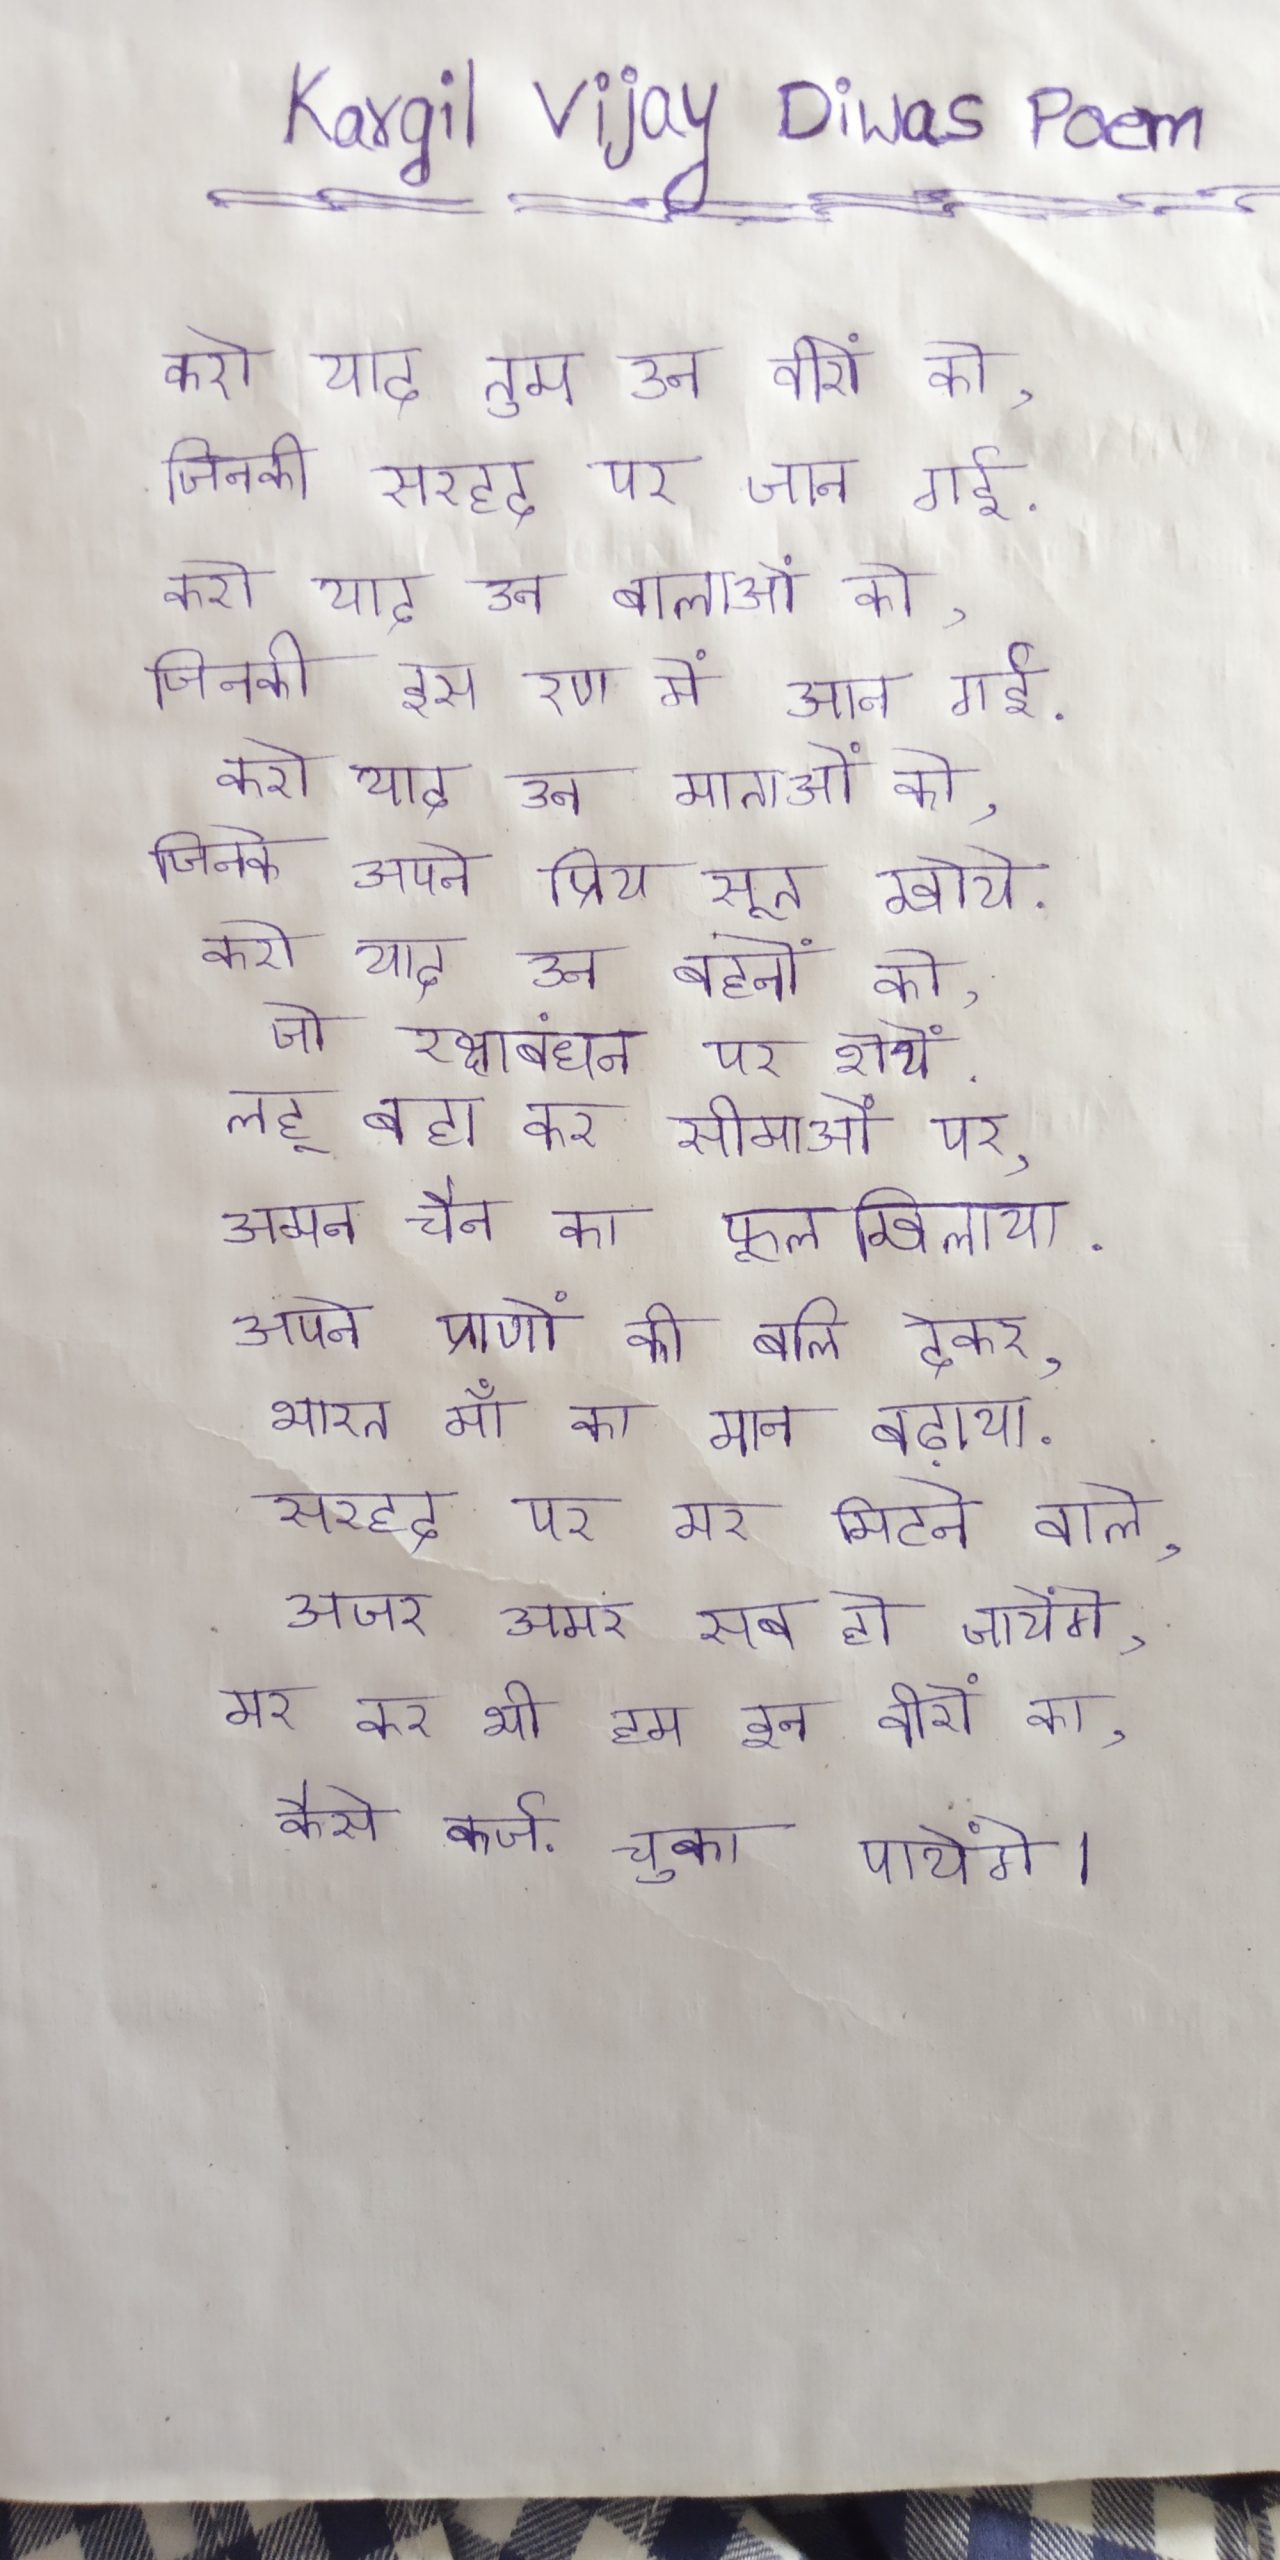 Kargil Vijay Diwas Poem
करो याद तुम उन वीरों को,
जिनकी सरहद पर जान गई.
करो याद उन बालाओं को,
जिनकी इस रण में आन गई.
करो याद उन माताओं को,
जिनके अपने प्रिय सूत खोये.
करो याद उन बहनों को,
जो रक्षाबंधन पर रोयें.
लहू बहा कर सीमाओं पर,
अमन चैन का फूल खिलाया.
अपने प्राणों की बलि देकर,
भारत माँ का मान बढ़ाया.
सरहद पर मर मिटने वाले,
अजर अमर सब हो जायेंगे,
मर कर भी हम इन वीरों का,
कैसे कर्ज. चुका पायेंगे।